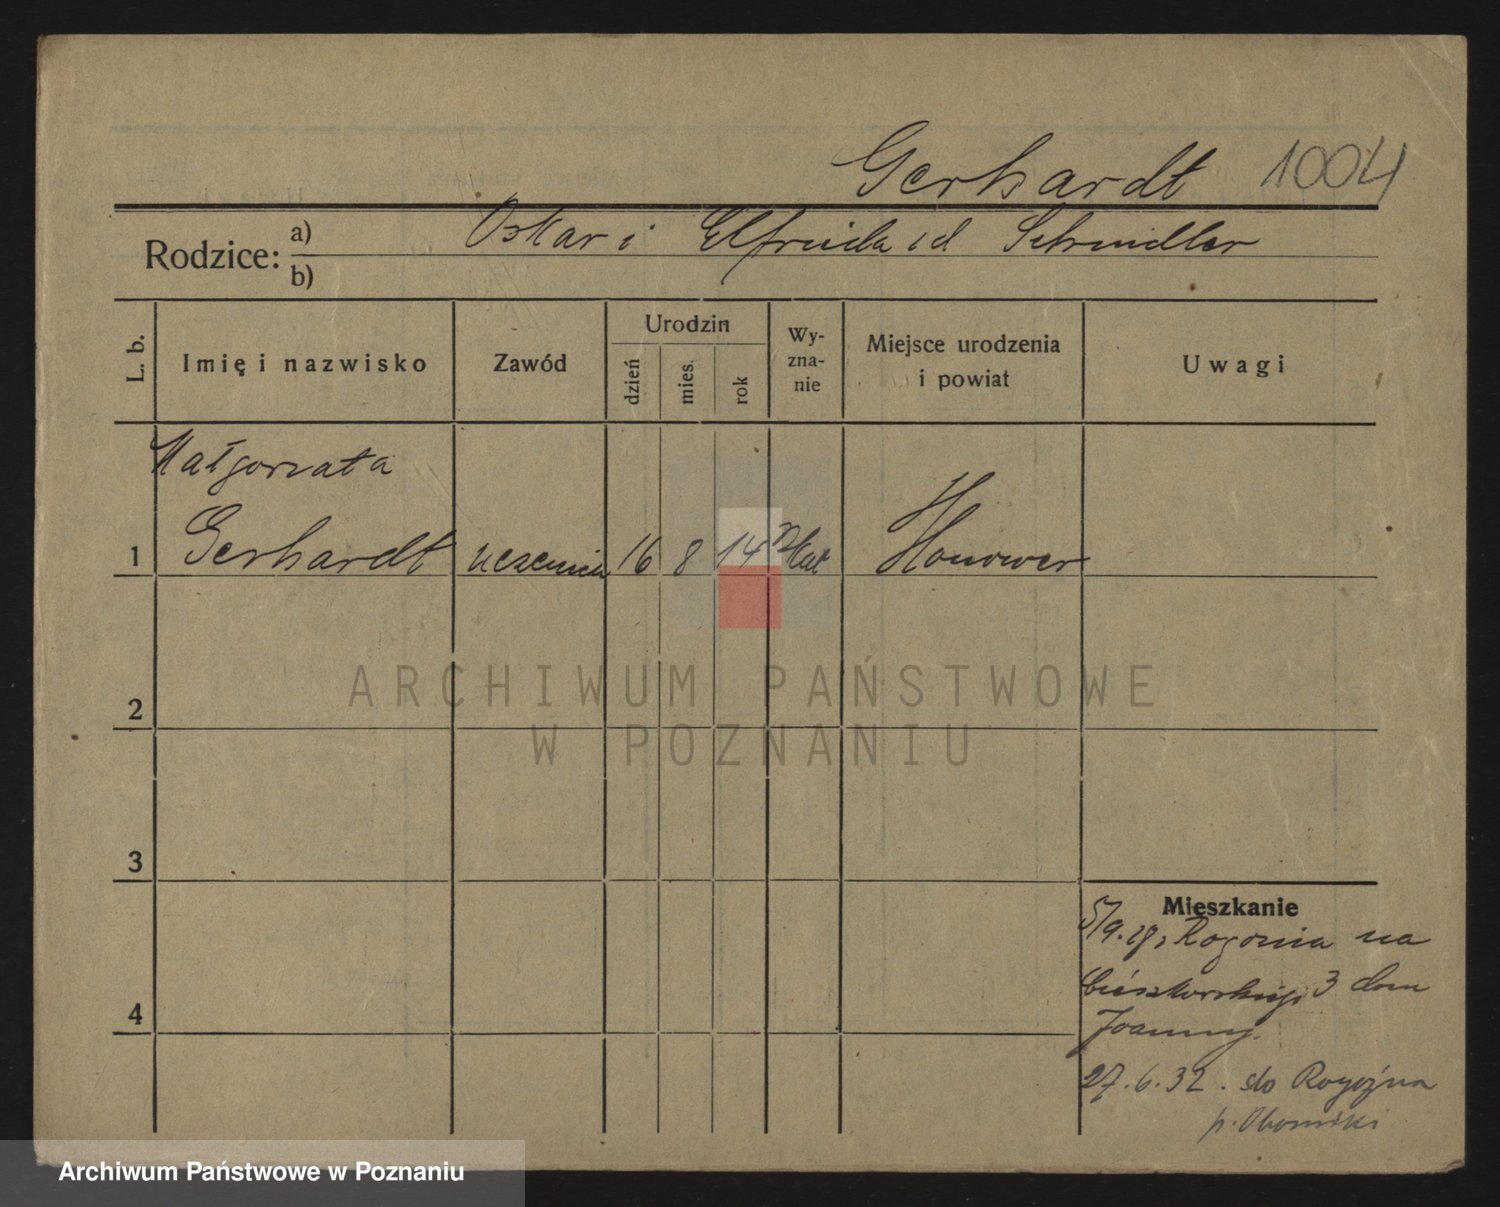 Gerhardt 1004
Rodzice: a) Oskar i Elfrieda z d Schmidler
b)
L. b.
Imię i nazwisko
Zawód
Urodzin
dzień
mies.
rok
Wy-
zna-
nie
Miejsce urodzenia
i powiat
Uwagi
Małgorzata
1 Gerhardt uczenica 16 8 14 Kat Hanower
2
3
4
Mieszkanie
5/9.29, na
3 dom
Joanny.
27.6.32. do Rogoźna
p. Oborniki
ARCHIWUM PAŃSTWOWE
W POZNANIU
Archiwum Państwowe w Poznaniu